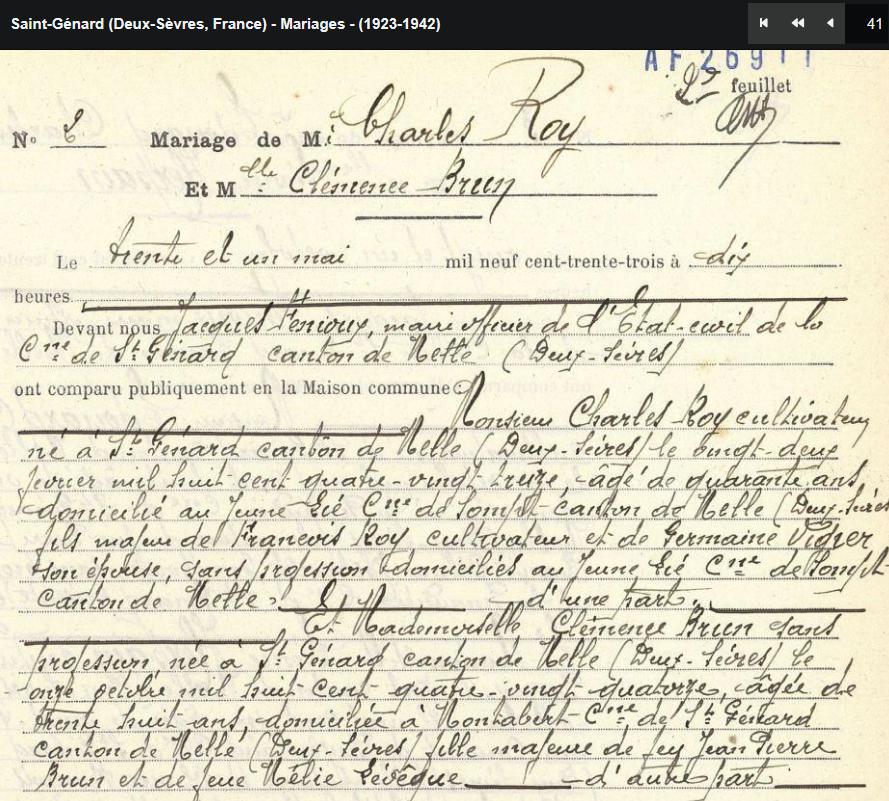 Saint-Génard (Deux-Sèvres, France) - Mariages - (1923-1942)
41
AF 26911
2e feuillet
N° 2 Mariage de M. Charles Roy
Et M elle Clémence Brun
Le trente et un mai mil neuf cent-trente-trois à dix
heures
Devant nous Jacques Fenioux, maire officier de l'Etat-civil de la
Cne de St Génard canton de Melle (Deux-Sèvres)
ont comparu publiquement en la Maison commune :
Monsieur Charles Roy cultivateur
né à St Génard canton de Melle (Deux-Sèvres) le vingt-deux
février mil huit cent quatre-vingt treize, âgé de quarante ans,
domicilié au Jeune Lié Cne de Sompt canton de Melle (Deux-Sèvres
fils majeur de Francois Roy cultivateur et de Germaine Vigier
son épouse, sans profession domiciliés au Jeune Lié Cne de Sompt
canton de Melle. d'une part.
Et Mademoiselle Clémence Brun sans
profession née à St Génard canton de Melle (Deux-Sèvres) le
onze octobre mil huit cent quatre-vingt-quatorze, âgée de
trente huit ans, domiciliée à Montabert Cne de St Génard
canton de Melle (Deux-Sèvres) fille majeure de feu Jean Pierre
Brun et de feue Mélie Lévêque d'autre part